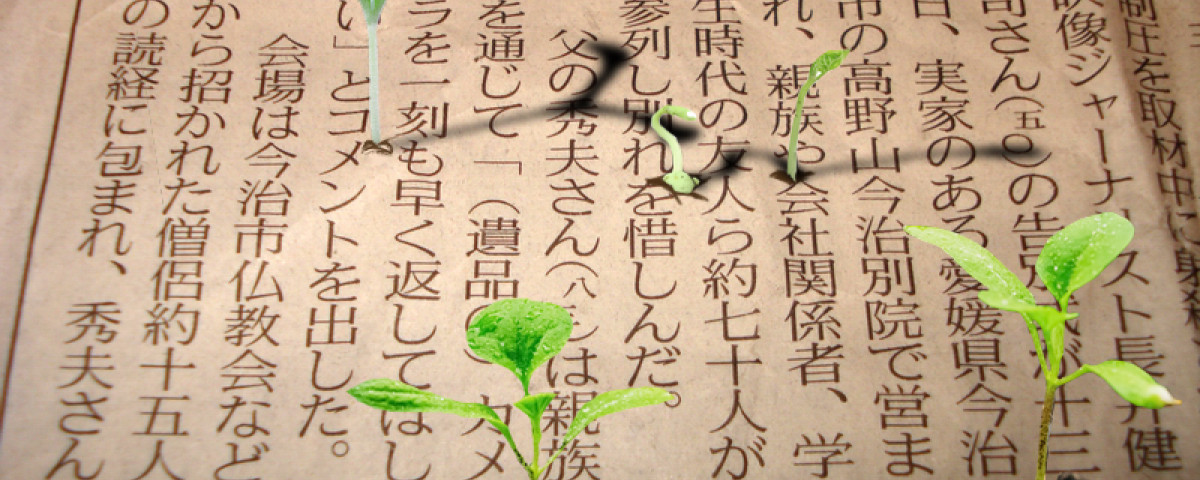 制圧を取材中に射殺
映像ジャーナリスト長井健
司さん（五〇）の告別式が十三
日、実家のある愛媛県今治
市の高野山今治別院で営ま
れ、親族や会社関係者、学
生時代の友人ら約七十人が
参列し別れを惜しんだ。
父の秀夫さん（八）は親族
を通じて「（遺品の）カメ
ラを一刻も早く返してほし
い」とコメントを出した。
会場は今治市仏教会など
から招かれた僧侶約十五人
の読経に包まれ、秀夫さん